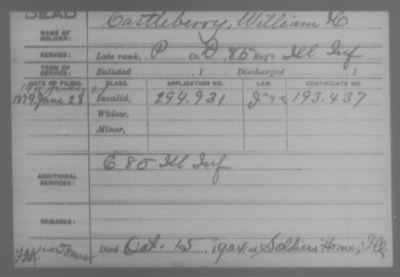 DEAD
Castleberry, William H
NAME OF SOLDIER:
SERVICE: Late rank, P Co. D, 85 Reg't Ill Inf
TERM OF SERVICE: Enlisted , 1 Discharged , 1
DATE OF FILING. CLASS. APPLICATION NO. LAW. CERTIFICATE NO.
1879 June 28 Invalid, 294.931 193.437
Widow,
Minor,
ADDITIONAL SERVICES: G 85 Ill Inf
REMARKS:
Died Oct. 15, at Soldiers Home, Ill